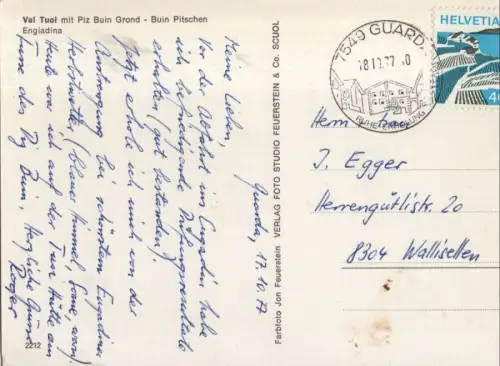 Val Tuoi mit Piz Buin Grond - Buin Pitschen
Engiadina
Guarda, 17.10.77
Meine Lieben,
Vor der Abfahrt ins Engadin habe
ich befriedigende Prüfungsresultate
erhalten (gut bestanden).
Jetzt erhole ich mich von der
Anstrengung bei schönstem Engadiner
Herbstwetter (blauer Himmel, Sonne, warm).
Heute war ich auf der Tuoi Hütte am
Fusse des Piz Buin. Herzliche Grüsse
2212
Farbfoto Jon Feuerstein VERLAG FOTO STUDIO FEUERSTEIN & Co. SCUOL
7549 GUARDA
18.10.77
HELVETIA
40
I. Egger
Herrengütlistr. 20
8304 Wallisellen